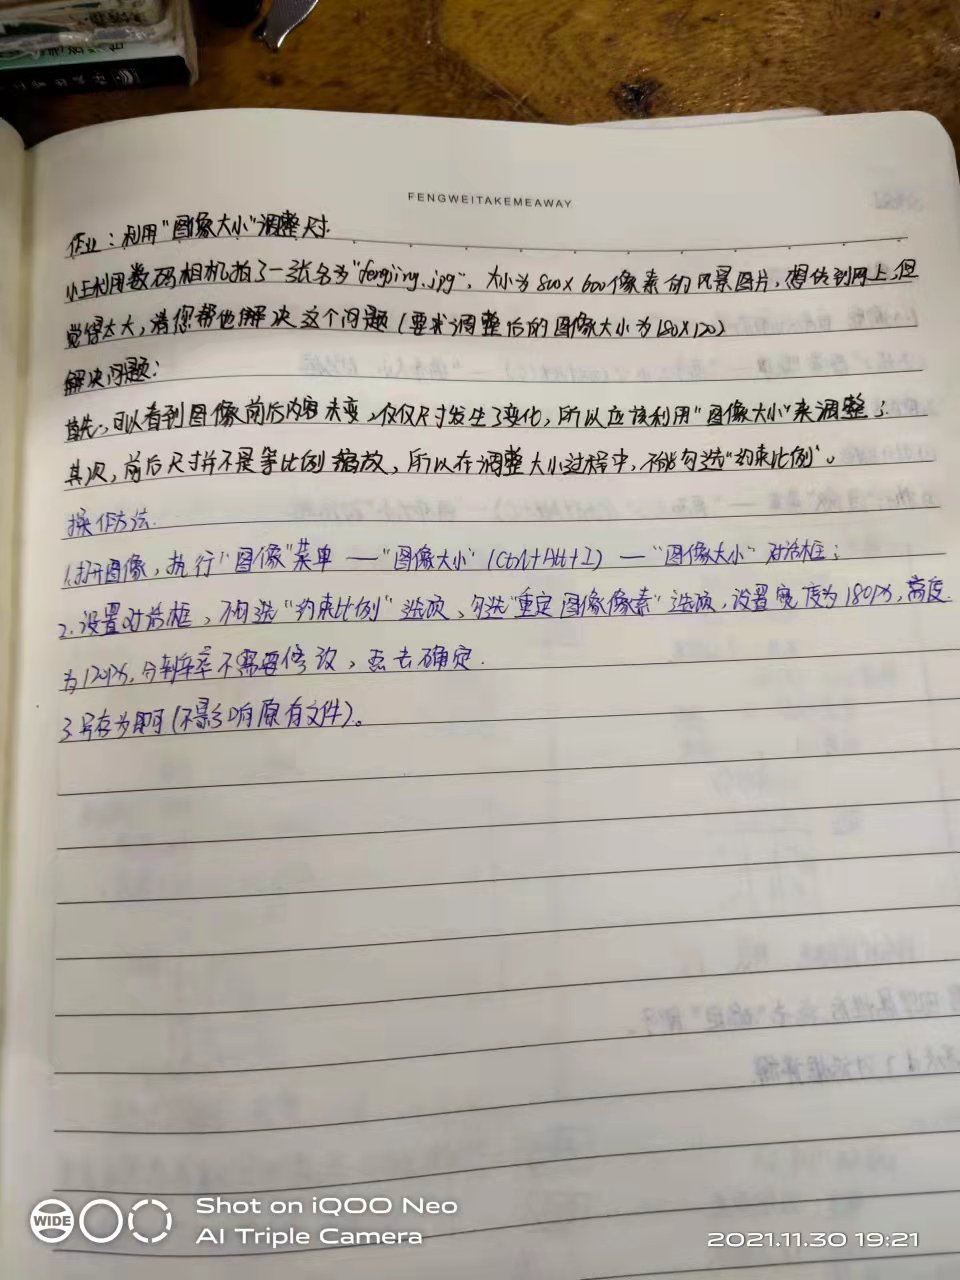 FENGWEITAKEMEAWAY
作业：利用"图像大小"调整尺寸.
小王利用数码相机拍了一张名为"fengjing.jpg"，大小为800×600像素的风景图片，想传到网上，但
觉得太大，请您帮他解决这个问题（要求调整后的图像大小为180×120）
解决问题：
首先，可以看到图像前后内容未变，仅仅尺寸发生了变化，所以应该利用"图像大小"来调整；
其次，前后尺寸并不是等比例缩放，所以在调整大小过程中，不能勾选"约束比例"。
操作方法.
1.打开图像，执行"图像"菜单—"图像大小"(Ctrl+Alt+I)—"图像大小"对话框；
2.设置对话框，不勾选"约束比例"选项，勾选"重定图像像素"选项，设置宽度为180px，高度
为120px，分辨率不需要修改，点击确定.
3.另存为即可（不影响原有文件）。
WIDE
Shot on iQOO Neo
AI Triple Camera
2021.11.30 19:21